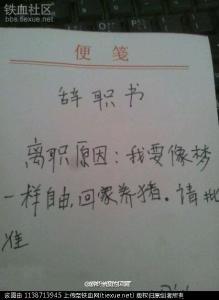 铁血社区
bbs.tiexue.net
便笺
辞职书
离职原因：我要像梦
一样自由，回家养猪。请批
准
图为 1138713945 上传至铁血网(tiexue.net) 版权归原创者所有